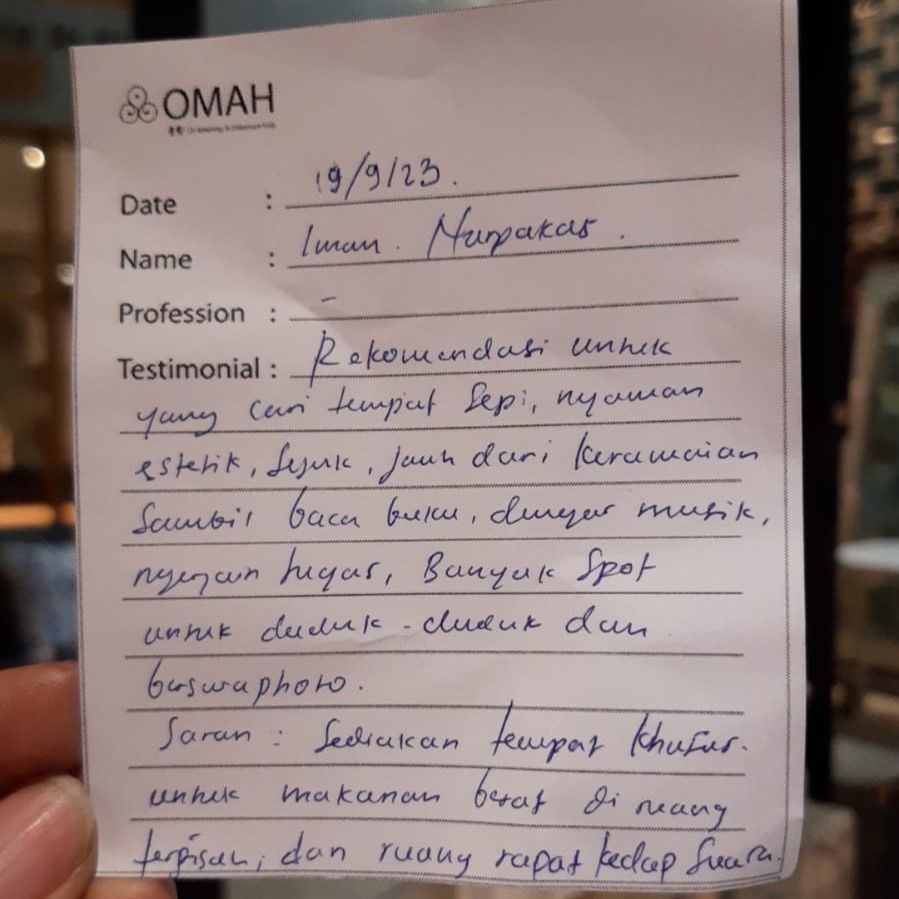 OMAH
Date : 19/9/23.
Name : Iman. Nurpakar.
Profession : -
Testimonial : Rekomendasi untuk
yang cari tempat sepi, nyaman
estetik, sejuk, jauh dari keramaian
Sambil baca buku, dengar musik,
ngerjain tugas, Banyak Spot
untuk duduk-duduk dan
berswaphoto.
Saran : Sediakan tempat khusus.
untuk makanan berat di ruang
terpisah, dan ruang rapat kedap suara.